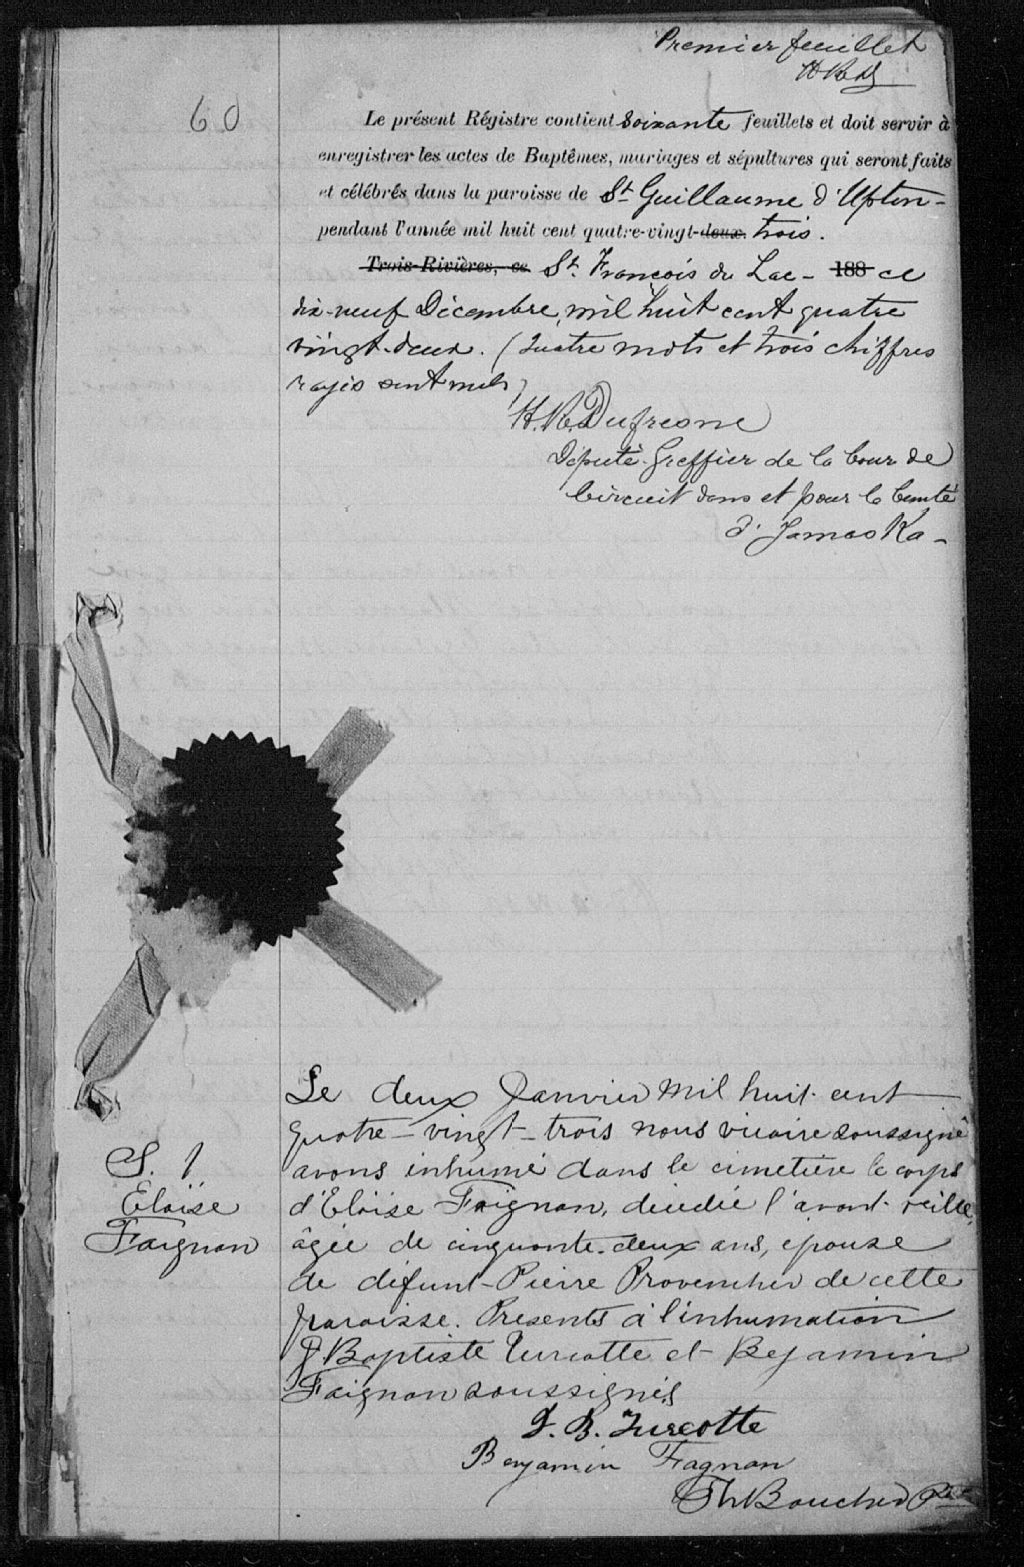 Premier feuillet
HRD
60
Le présent Régistre contient soixante feuillets et doit servir à
enregistrer les actes de Baptêmes, mariages et sépultures qui seront faits
et célébrés dans la paroisse de St Guillaume d'Upton -
pendant l'année mil huit cent quatre-vingt-deux. trois.
Trois-Rivières, ce St. François du Lac - 188 ce
dix-neuf Décembre, mil huit cent quatre
vingt-deux. (Quatre mots et trois chiffres
rayés sont nuls)
H. R. Dufresne
Député-Greffier de la Cour de
Circuit dans et pour le Comté
d'Yamaska -
Le deux Janvier mil huit-cent
quatre-vingt-trois nous vicaire soussigné
S. 1
avons inhumé dans le cimetière le corps
Eloïse
d'Eloïse Faignan, décédée l'avant-veille,
Faignan
âgée de cinquante-deux ans, épouse
de défunt Pierre Provencher de cette
paroisse. Présents à l'inhumation
J Baptiste Turcotte et Bejamin
Faignan soussignés
J. B. Turcotte
Benjamin Fagnan
Th Boucher Ptre